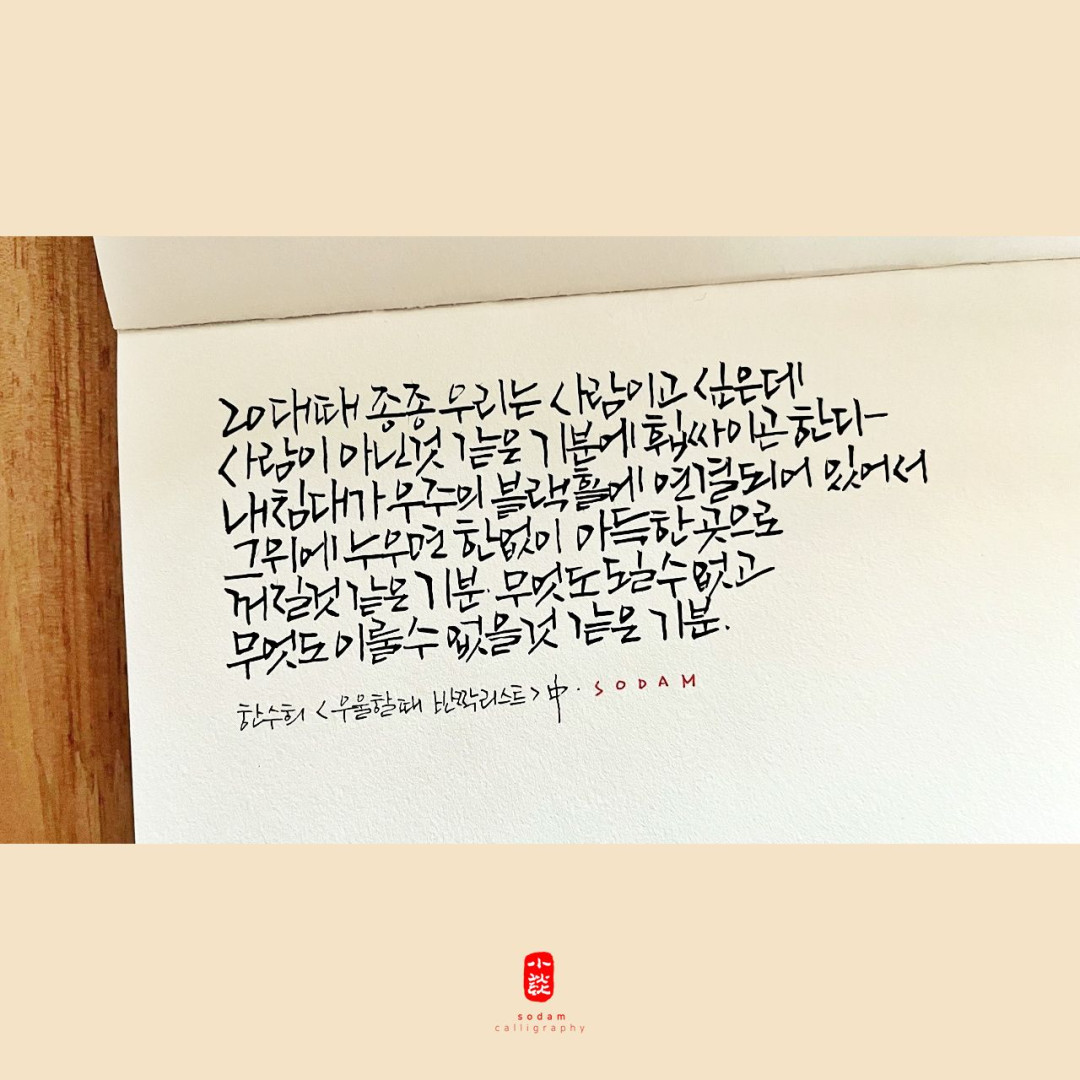 20대때 종종 우리는 사람이고 싶은데
사람이 아닌것 같은 기분에 휩싸이곤 한다
내침대가 우주의 블랙홀에 연결되어 있어서
그위에 누우면 한없이 아득한 곳으로
꺼질것 같은 기분. 무엇도 될수 없고
무엇도 이룰수 없을것 같은 기분.
한수희 <우울할때 반짝리스트> 中. SODAM
小談
sodam
calligraphy